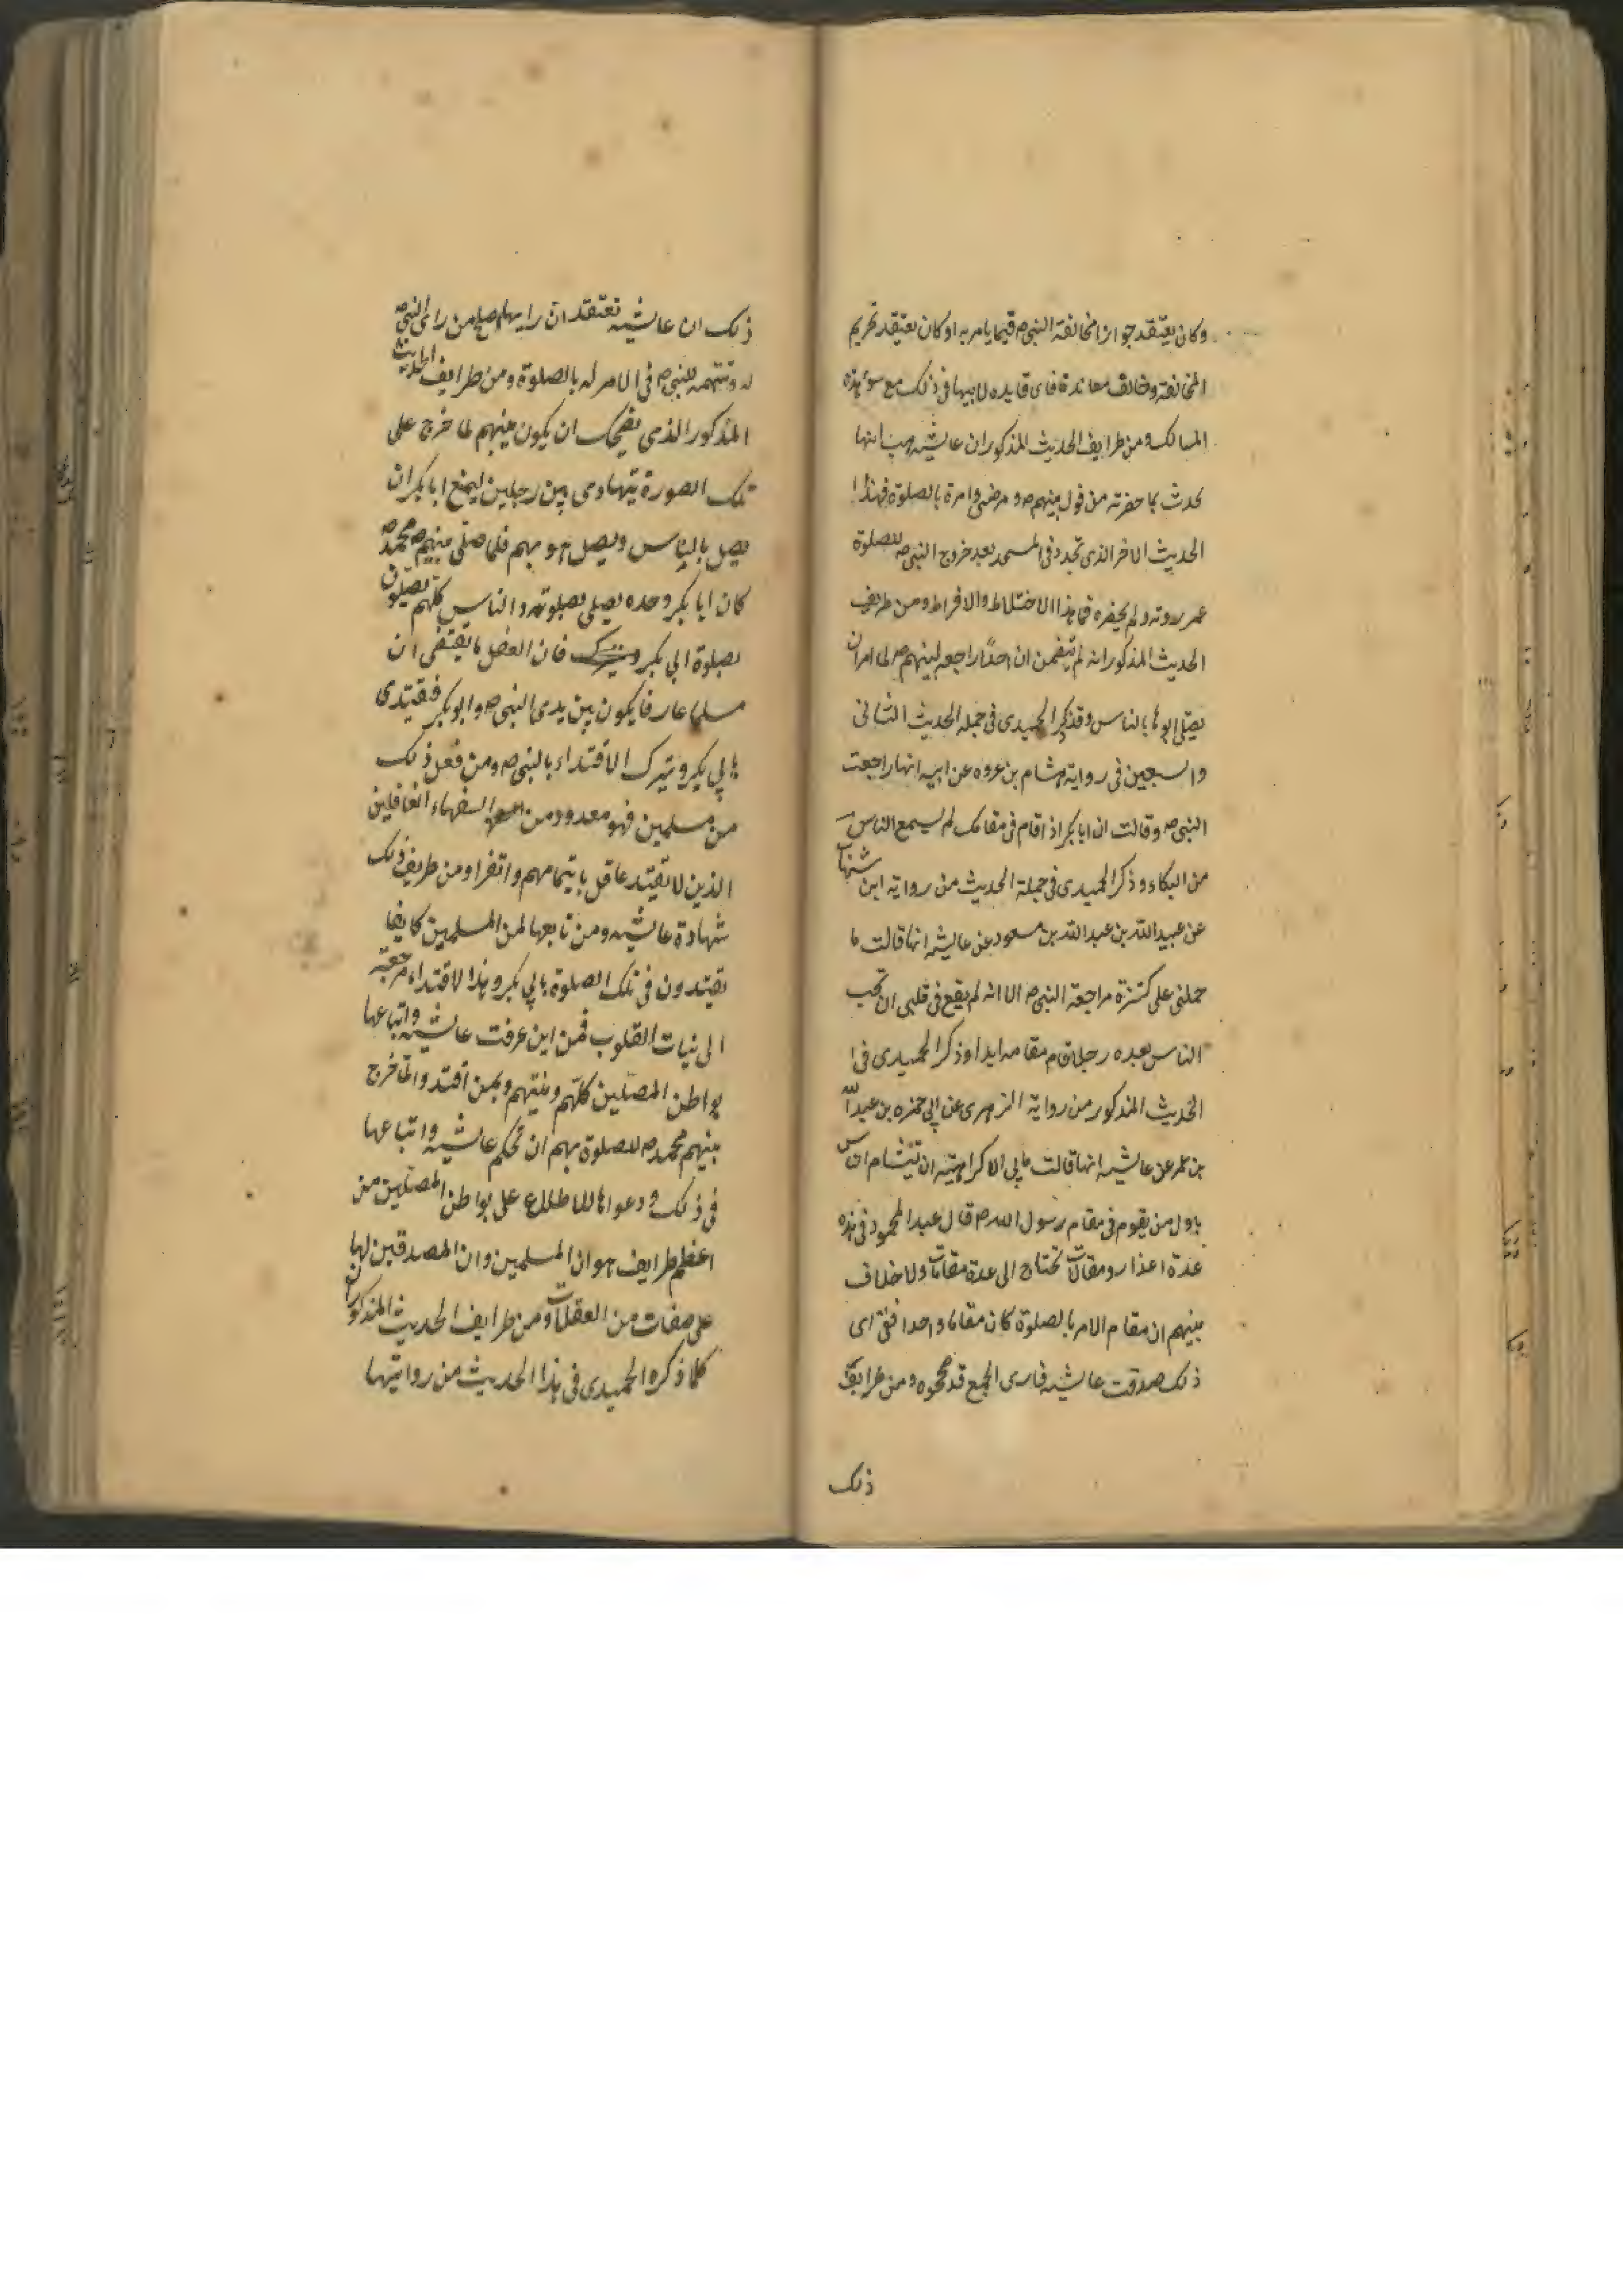 وكان يعتقد جواز مخالفة النبي ص فيما يامر به او كان يعتقد تحريم
المخالفة وخالف معاندة فاى فايده لابيها فى ذلك مع سوء هذه
المسالك ومن طرايف الحديث المذكور ان عايشه
تحدث بما حضرته من قول نبيهم ص و مرضه وامره بالصلوة فهذا
الحديث الاخر الذى تجدد فى المسجد بعد خروج النبي ص للصلوة
ولم يحضره فما هذا الاختلاط والافراط ومن طريف
الحديث المذكور انه لم يتضمن ان احدا راجع نبيهم ص لما امر ان
يصلى ابوها بالناس وقد ذكر الحميدى فى جملة الحديث الثانى
والسبعين فى رواية هشام بن عروه عن ابيه انها راجعت
النبي ص وقالت ان ابابكر اذا قام فى مقامك لم يسمع الناس
من البكاء وذكر الحميدى فى جملة الحديث من رواية ابن شهاب
عن عبيد الله بن عبد الله بن مسعود عن عايشه انها قالت ما
حملنى على كثرة مراجعة النبي ص الا انه لم يقع فى قلبى ان تحب
الناس بعده رجلا قام مقامه ابدا وذكر الحميدى فى
الحديث المذكور من رواية الزهرى عن ابى حمزه بن عبد الله
بن عمر عن عايشه انها قالت ما بى الا كراهية ان يتشام الناس
باول من يقوم فى مقام رسول الله ص قال عبد المحمود فى هذه
عدة اعذار ومقالات تحتاج الى عدة مقامات ولا خلاف
بينهم ان مقام الامر بالصلوة كان مقاما واحدا ففى اى
ذلك صدقت عايشه فارى الجميع قد صححوه ومن طرايف
ذلك
ذلك ان عايشه تعتقد ان رايها اصلح من راى النبي ص
له وتتهمه للنبي ص فى الامر له بالصلوة ومن طرايف الحديث
المذكور الذى يضحك ان يكون نبيهم لما خرج على
تلك الصورة يتهادى بين رجلين ليمنع ابا بكر ان
يصل بالناس ويصل هو بهم فلما صلى نبيهم محمد ص
كان ابا بكر وحده يصلى بصلوته والناس كلهم يصلون
بصلوة ابى بكر فان العقل ما يقتضى ان
مسلما عارفا يكون بين يدى النبي ص وابو بكر فيقتدى
بابى بكر ويترك الاقتداء بالنبي ص ومن فعل ذلك
من مسلمين فهو معدود من السفهاء الغافلين
الذين لا يقتد عاقل بايتمامهم وانفرا ومن طريف ذلك
شهادة عايشه ومن تابعها لمن المسلمين كانوا
يقتدون فى تلك الصلوة بابى بكر وهذا الاقتداء مرجعه
الى نيات القلوب فمن اين عرفت عايشه واتباعها
بواطن المصلين كلهم ونيتهم وبمن اقتدوا لما خرج
نبيهم محمد ص للصلوة بهم ان تحكم عايشه واتباعها
فى ذلك ودعواها للاطلاع على بواطن المصلين من
اعظم طرايف هوان المسلمين وان المصدقين لها
على صفات من الغفلات ومن طرايف الحديث المذكور ان
كلما ذكره الحميدى فى هذا الحديث من روايتها